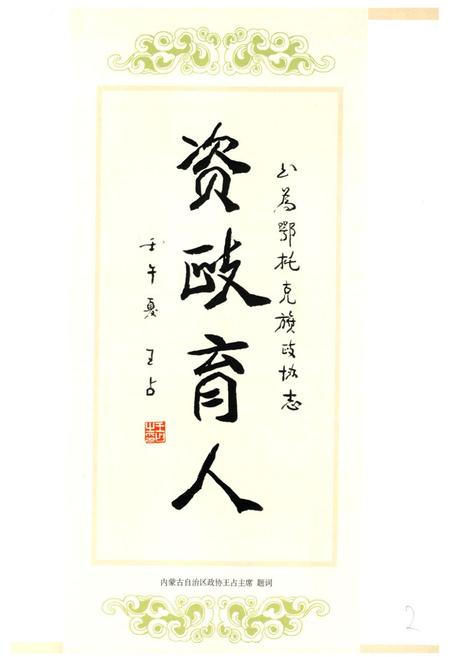 书为鄂托克旗政协志
资政育人
壬午夏 王占
内蒙古自治区政协王占主席 题词
2